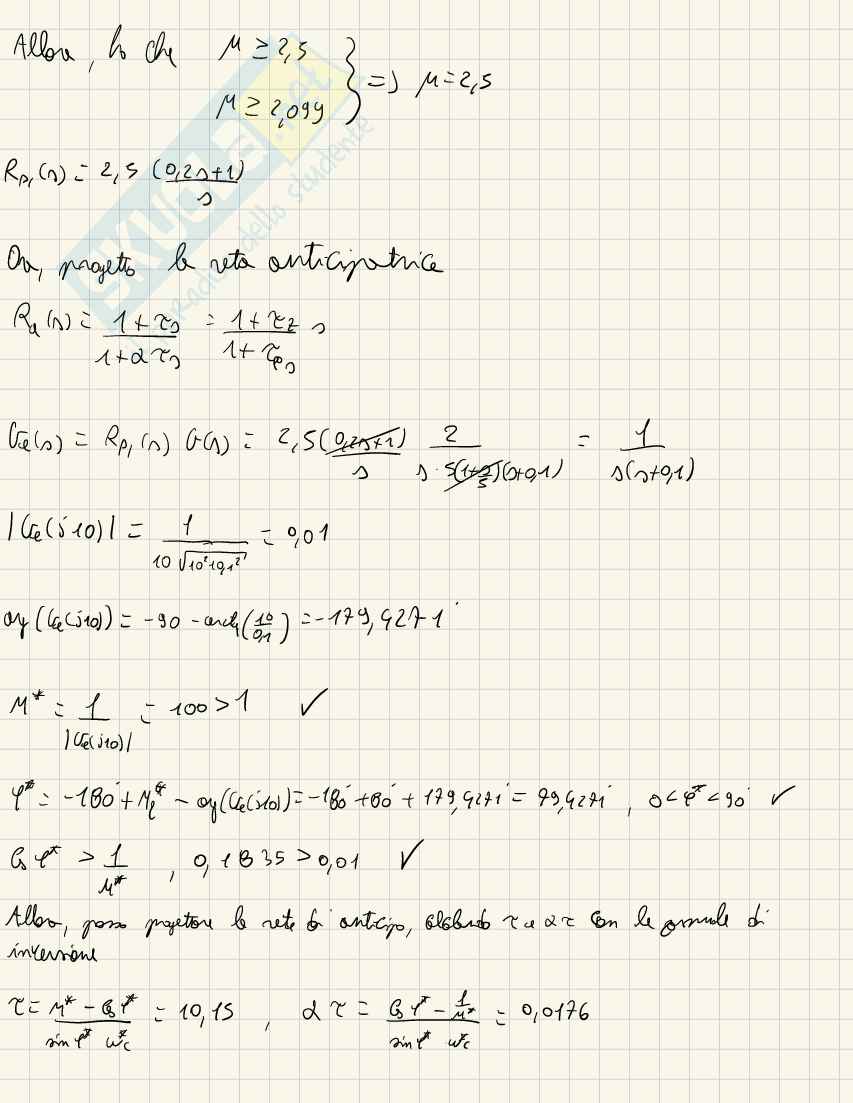 Allora, ho che μ ≥ 2,5
μ ≥ 2,099 } => μ = 2,5
R_P1(s) = 2,5 (0,2s+1) / s
Ora, progetto la rete anticipatrice
R_a(s) = (1+τs) / (1+ατs) = (1+τ_z s) / (1+τ_p s)
G_e(s) = R_P1(s) G(s) = 2,5(0,2s+1) / s · 2 / (s·5(1+s/5)(s+0,1)) = 1 / (s(s+0,1))
|G_e(j10)| = 1 / (10 √(10²+0,1²)) = 0,01
arg(G_e(j10)) = -90 - arctg(10/0,1) = -179,4271°
M* = 1 / |G_e(j10)| = 100 > 1 ✓
φ* = -180° + M_φ* - arg(G_e(j10)) = -180° + 80° + 179,4271° = 79,4271° , 0 < φ* < 90° ✓
cos φ* > 1/M* , 0,1835 > 0,01 ✓
Allora, posso progettare la rete di anticipo, calcolando τ e ατ con le formule di
inversione
τ = (M* - cos φ*) / (sin φ* ω_c*) = 10,15 , ατ = (cos φ* - 1/M*) / (sin φ* ω_c*) = 0,0176
SKUOLA.net
dello studente